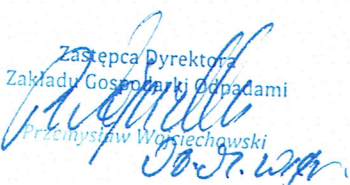 Zastępca Dyrektora
Zakładu Gospodarki Odpadami
Przemysław Wojciechowski